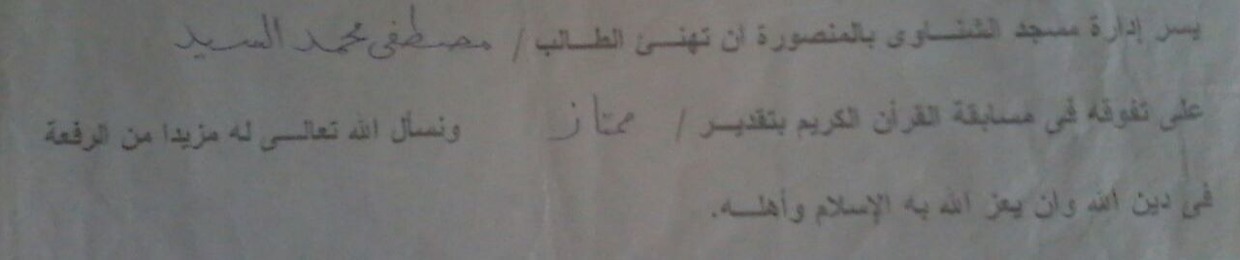 يسر إدارة مسجد الشناوى بالمنصورة ان تهنئ الطالب / مصطفى محمد السيد
على تفوقه فى مسابقة القرأن الكريم بتقدير / ممتاز ونسأل الله تعالى له مزيدا من الرفعة
فى دين الله وان يعز الله به الإسلام وأهله.